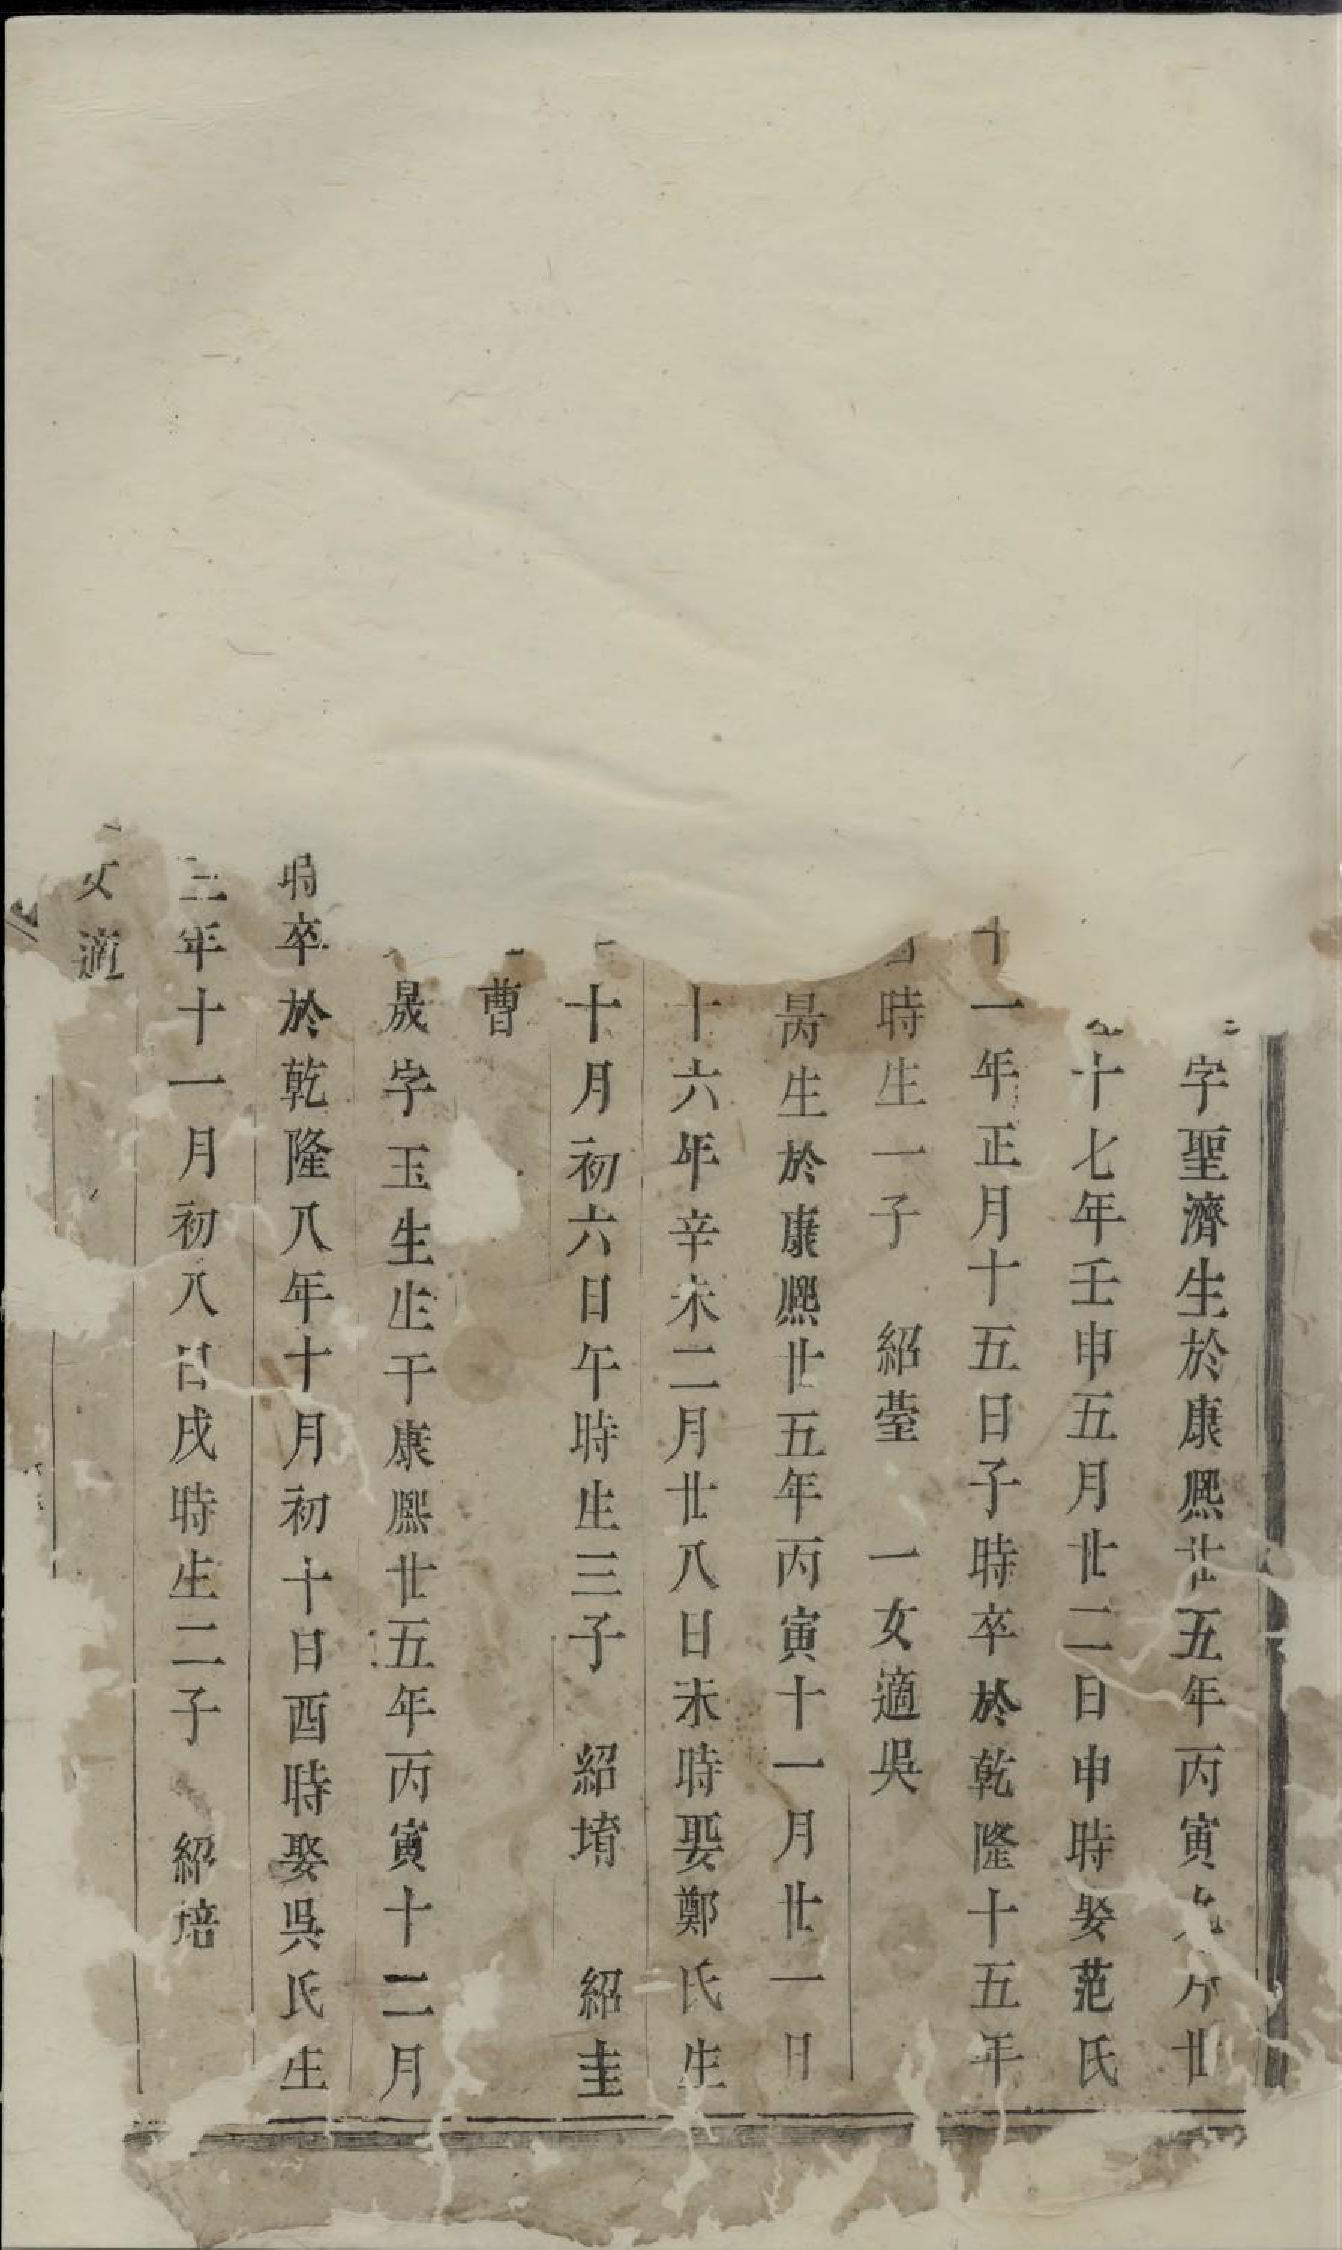 字聖濟生於康熙廿五年丙寅九月廿
十七年壬申五月廿二日申時娶范氏
十一年正月十五日子時卒於乾隆十五年
時生一子　紹𦽄　一女適吳
昺生於康熙廿五年丙寅十一月廿一日
十六年辛未二月廿八日未時娶鄭氏生
十月初六日午時生三子　紹堉　紹圭
曹
晟字玉生生于康熙廿五年丙寅十二月
時卒於乾隆八年十月初十日酉時娶吳氏生
三年十一月初八日戌時生二子　紹培
女適